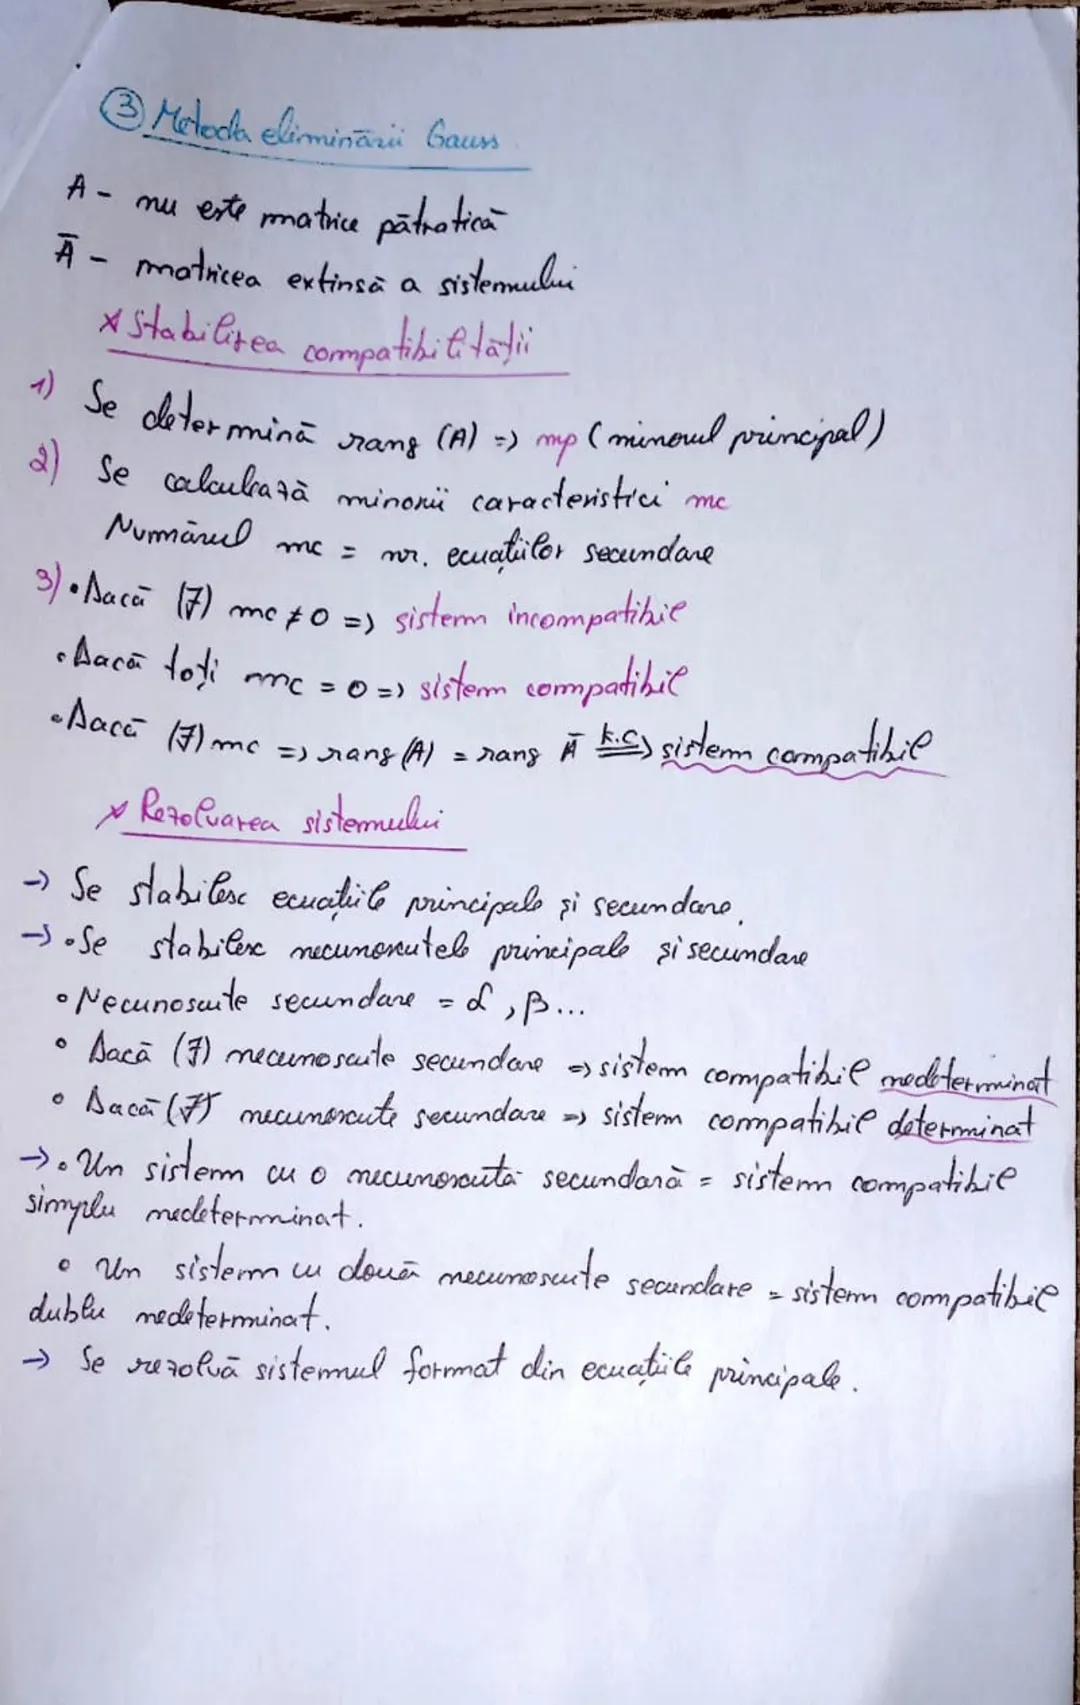 ③ Metoda eliminării Gauss
A - nu este matrice pătratică
Ā - matricea extinsă a sistemului
* Stabilirea compatibilității
1) Se determină rang (A) => mp (minorul principal)
2) Se calculează minorii caracteristici mc
Numărul mc = nr. ecuațiilor secundare
3) • Dacă (∃) mc ≠ 0 => sistem incompatibil
• Dacă toți mc = 0 => sistem compatibil
• Dacă (∄) mc => rang (A) = rang Ā K.C.=> sistem compatibil
* Rezolvarea sistemului
-> Se stabilesc ecuațiile principale și secundare.
-> • Se stabilesc necunoscutele principale și secundare
• Necunoscute secundare = α, β...
• Dacă (∃) necunoscute secundare => sistem compatibil nedeterminat
• Dacă (∄) necunoscute secundare => sistem compatibil determinat
-> • Un sistem cu o necunoscută secundară = sistem compatibil
simplu nedeterminat.
• Un sistem cu două necunoscute secundare = sistem compatibil
dublu nedeterminat.
-> Se rezolvă sistemul format din ecuațiile principale.